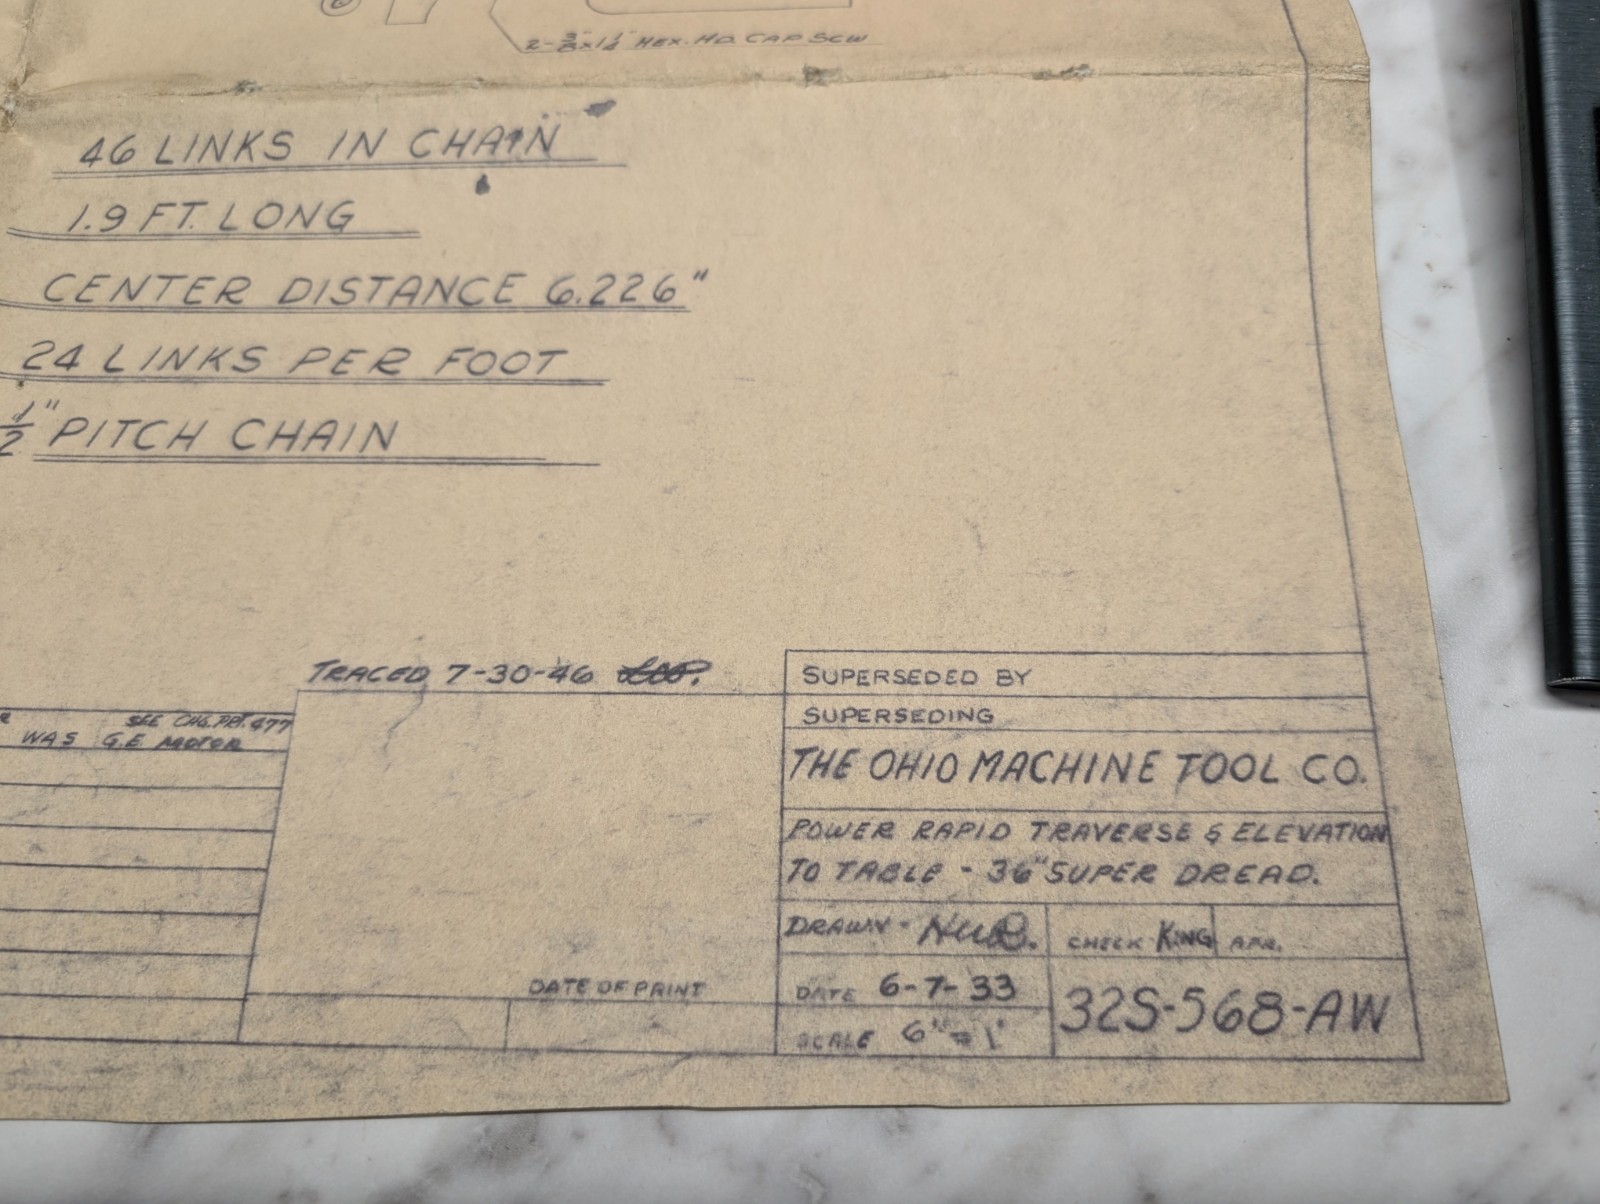 2-3/8"x1 1/4" HEX. HD. CAP SCW
46 LINKS IN CHAIN
1.9 FT. LONG
CENTER DISTANCE 6.226"
24 LINKS PER FOOT
1/2" PITCH CHAIN
TRACED 7-30-46
SEE CHG. PRT. 477
WAS G.E MOTOR
DATE OF PRINT
SUPERSEDED BY
SUPERSEDING
THE OHIO MACHINE TOOL CO.
POWER RAPID TRAVERSE & ELEVATION
TO TABLE - 36" SUPER DREAD.
DRAWN -
CHECK KING APR.
DATE 6-7-33
SCALE 6"=1'
32S-568-AW